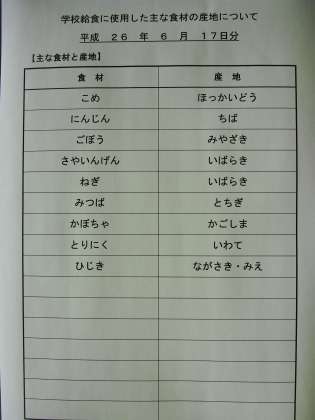 学校給食に使用した主な食材の産地について
平成 26 年 6 月 17日分
【主な食材と産地】
食 材 産 地
こめ ほっかいどう
にんじん ちば
ごぼう みやざき
さやいんげん いばらき
ねぎ いばらき
みつば とちぎ
かぼちゃ かごしま
とりにく いわて
ひじき ながさき・みえ